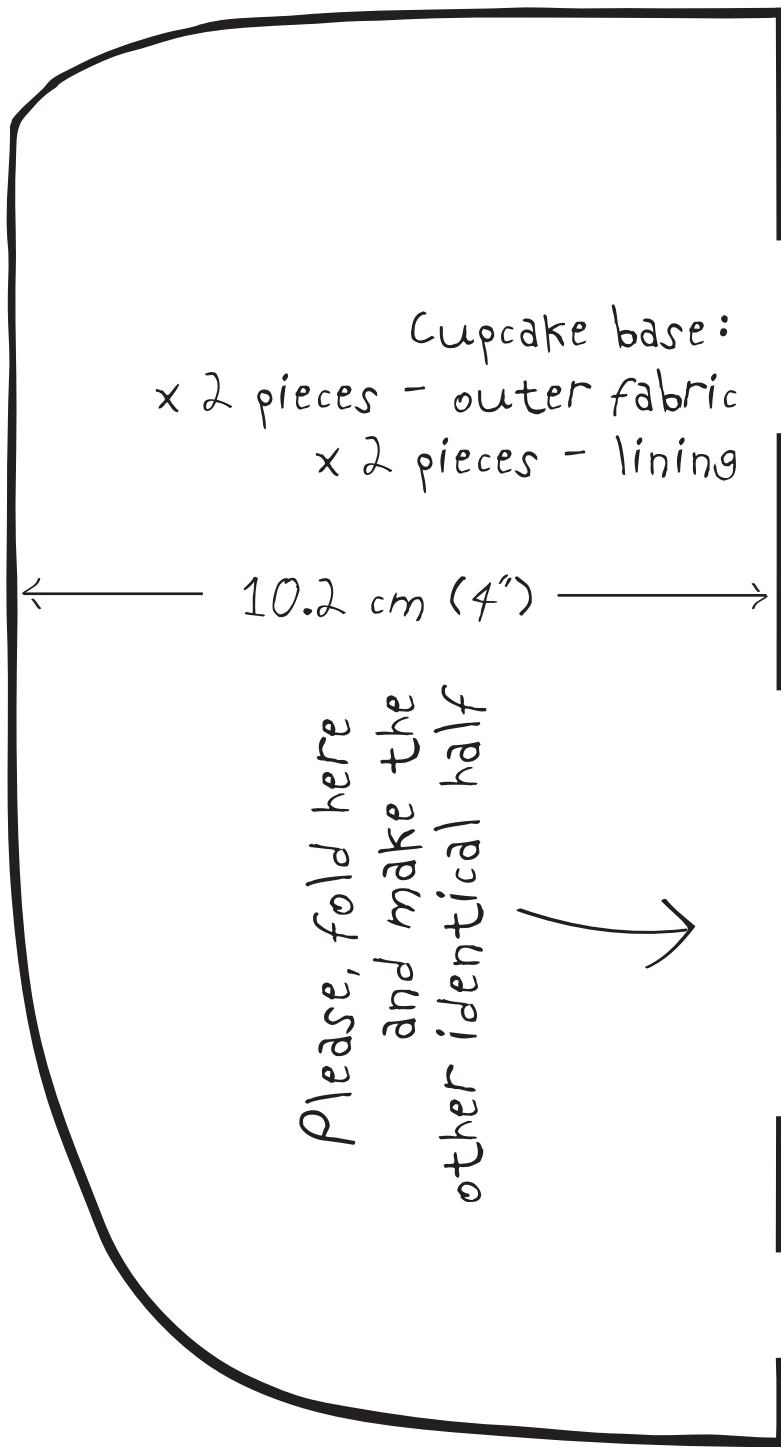 Cupcake base:
x 2 pieces - outer fabric
x 2 pieces - lining
10.2 cm (4")
Please, fold here
and make the
other identical half